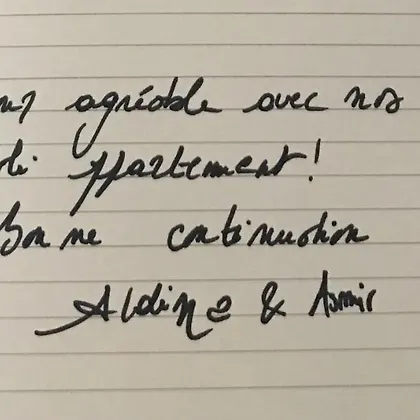 agréable avec nos
appartement!
Bonne continuation
Aldine & Asmir